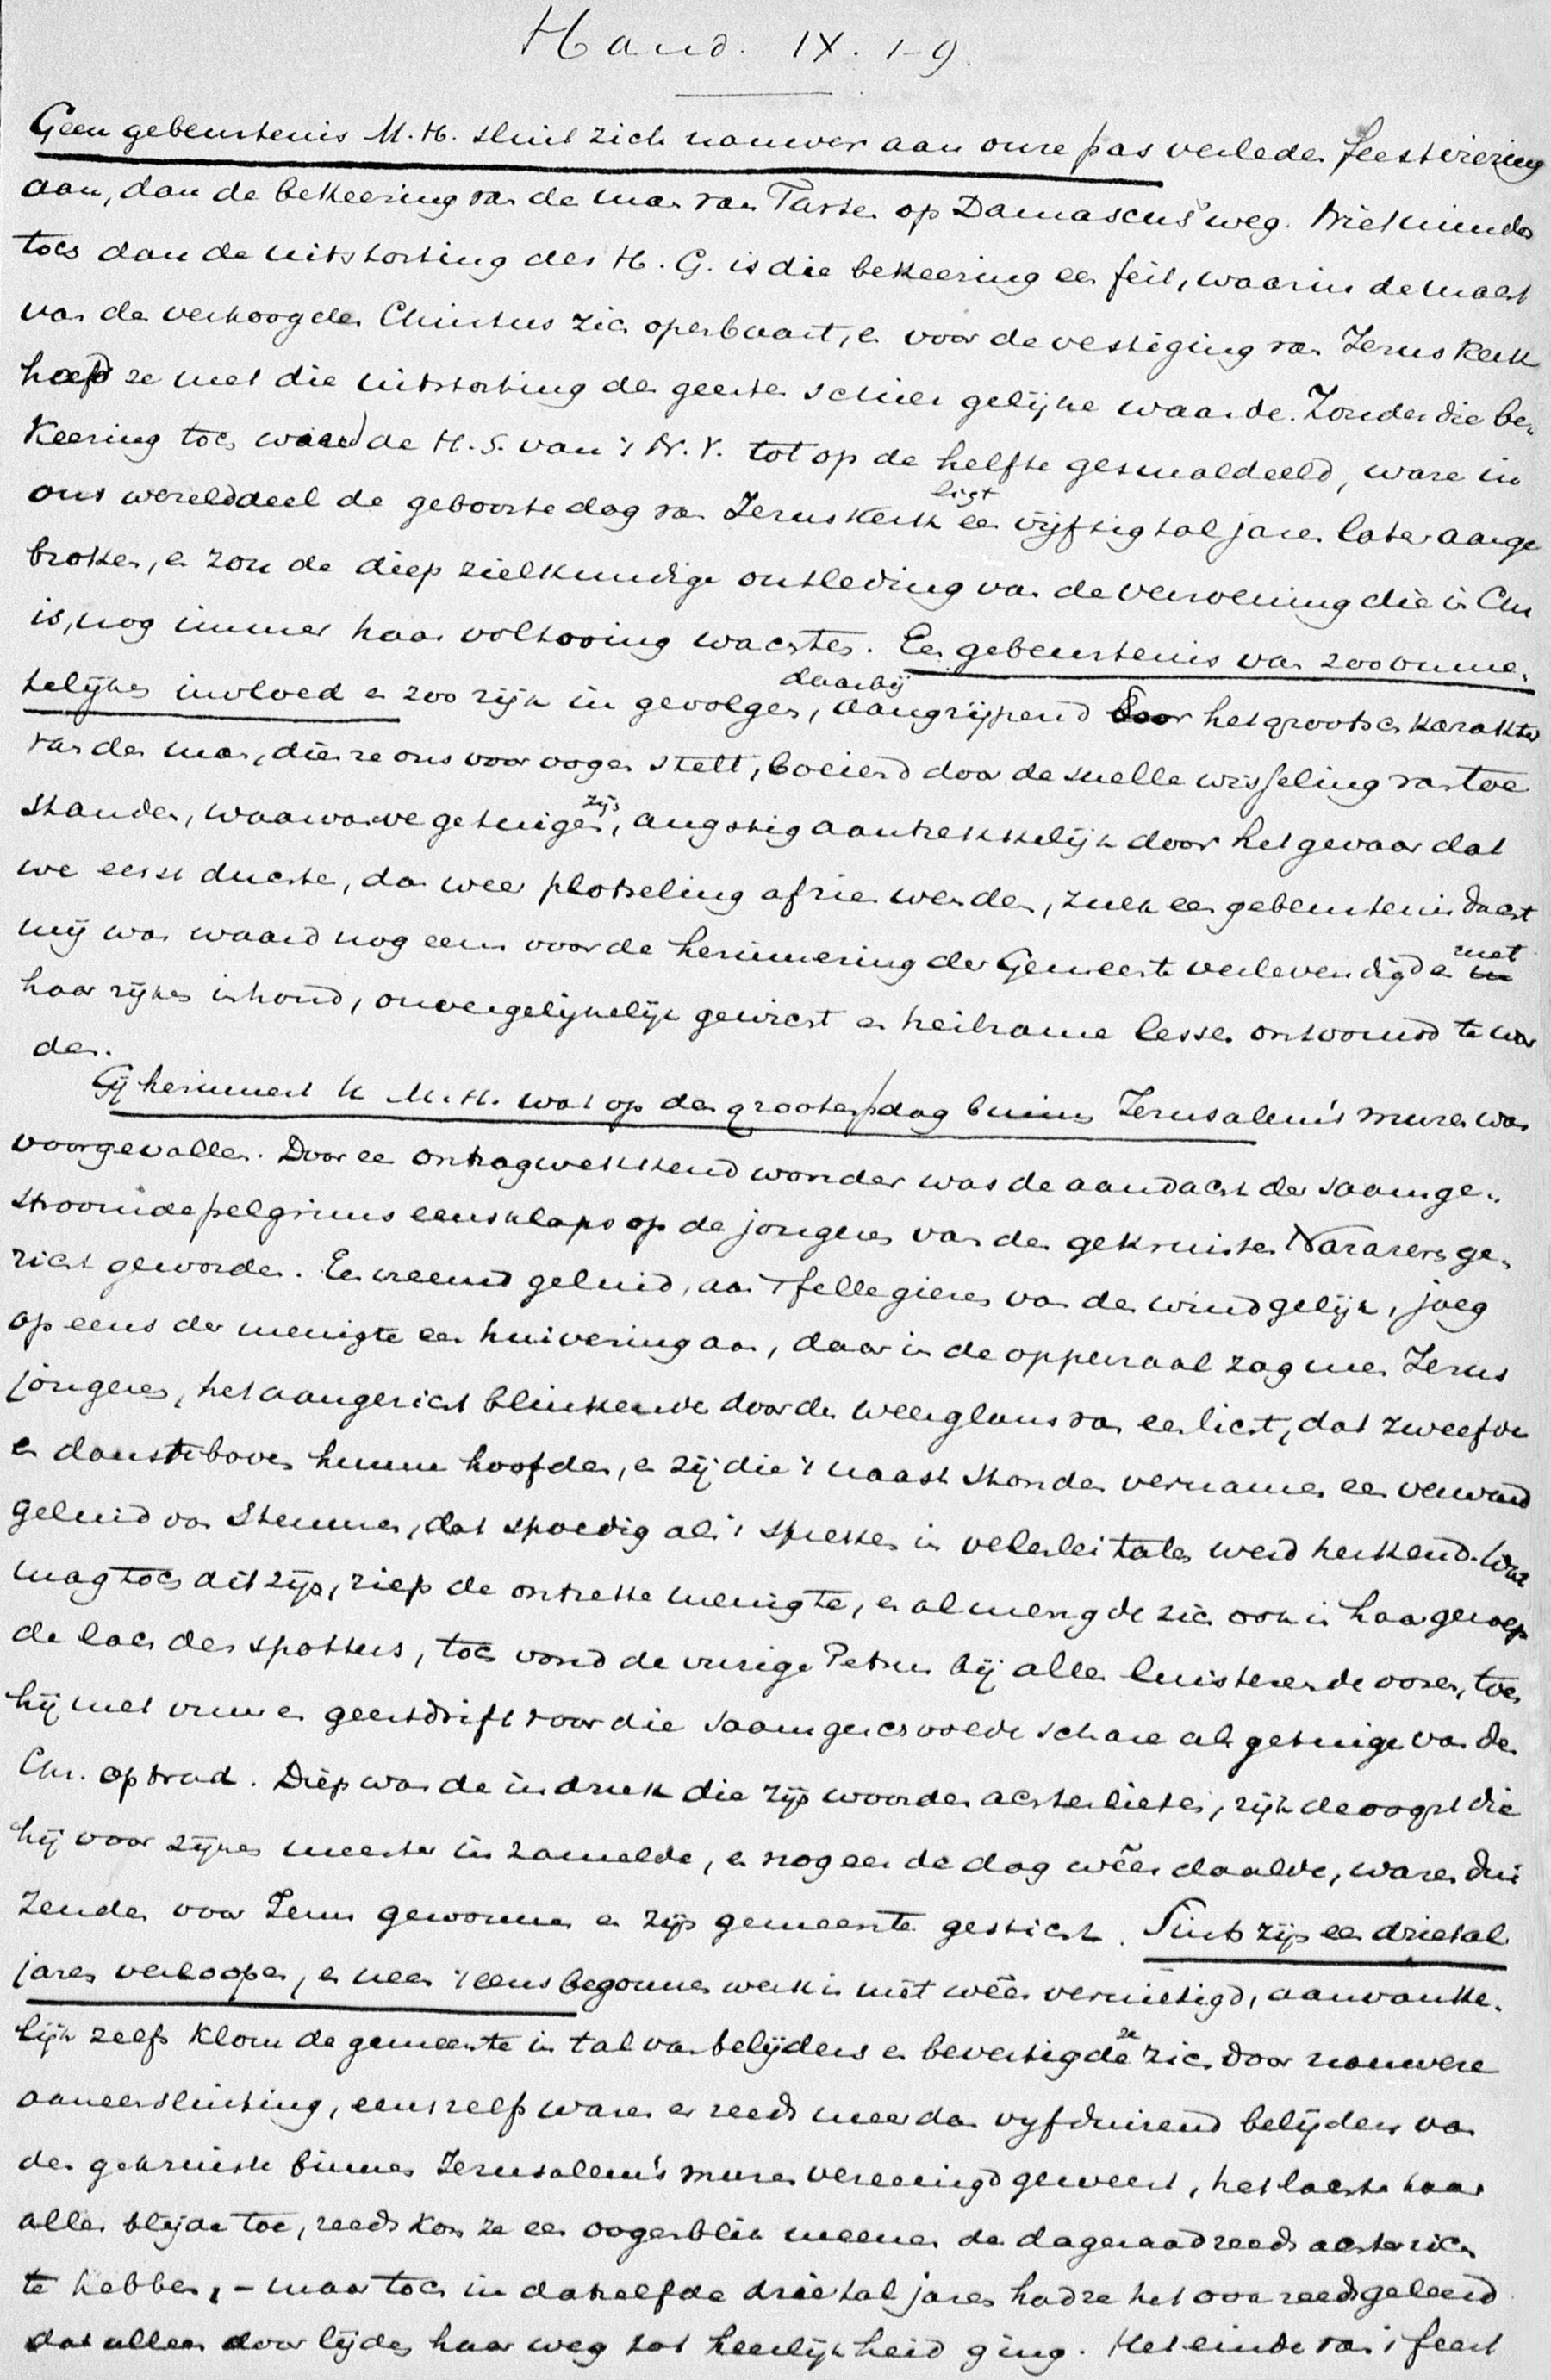 Hand. IX. 1-9.
Geen gebeurtenis M.H. sluit zich nauwer aan onze pas verleden feestviering
aan, dan de bekeering van de man van Tarsen op Damascus' weg. Niet minder
toch dan de uitstorting des H.G. is die bekeering een feit, waarin de macht
van den verhoogden Christus zich openbaart, en voor de vestiging van Jezus Kerk
heeft ze met die uitstorting des geestes schier gelijke waarde. Zonder die be-
keering toch ware de H.S. van 't N.V. tot op de helfte gesmaldeeld, ware in
ons werelddeel de geboortedag van Jezus Kerk licht een vijftigtal jaren later aange
broken, en zou de diep zielkundige ontleding van de verzoening die in Chr
is, nog immer haar voltooiing wachten. Een gebeurtenis van zoo onme-
telijken invloed en zoo rijk in gevolgen, daarbij aangrijpend door het grootsch karakter
van den man, dien ze ons voor oogen stelt, boeiend door de snelle wisseling van toe
standen, waarvan we getuigen zijn, angstig aantrekkelijk door het gevaar dat
we eerst duchten, dan weer plotseling afzien wenden, zulk een gebeurtenis dacht
mij was waard nog eens voor de herinnering der Gemeente verlevendigd en met
haar rijken inhoud, onvergelijkelijk gewicht en heilzame lessen ontvouwd te wor
den.
Gij herinnert U M.H. wat op den grooten pdag binnen Jerusalem's muren was
voorgevallen. Door een ontzagwekkend wonder was de aandacht der saamge-
stroomde pelgrims eensklaps op de jongeren van den gekruisten Nazarener ge-
richt geworden. Een vreemd geluid, aan 't felle gieren van den wind gelijk, joeg
op eens der menigte een huivering aan, daar in de opperzaal zag men Jezus
jongeren, het aangezicht blinkende door den weerglans van een licht, dat zweefde
en danste boven hunne hoofden, en zij die 't naast stonden vernamen een verward
geluid van stemmen, dat spoedig als 't spreken in velerlei talen werd herkend. Wat
mag toch dit zijn, riep de ontzette menigte, en al mengde zich ook in haar geroep
de lach des spotters, toch vond de vurige Petrus bij allen luisterende ooren, toen
hij met vuur en geestdrift voor die saamgeschoolde schare als getuige van den
Chr. optrad. Diep was de indruk die zijn woorden achterlieten, rijk de oogst die
hij voor zijnen meester in zamelde, en nog eer de dag wêer daalde, waren dui
zenden voor Jezus gewonnen en zijn gemeente gesticht. Sints zijn een drietal
jaren verloopen, en neen 't eens begonnen werk is niet wêer vernietigd, aanvanke-
lijk zelfs klom de gemeente in tal van belijders en bevestigde ze zich door nauwere
aaneensluiting, eens zelfs waren er reeds meer dan vijfduizend belijders van
den gekruiste binnen Jerusalem's muren vereenigd geweest, het lachte haar
alles blijde toe, reeds kon ze een oogenblik meenen de dageraad reeds achter zich
te hebben, – maar toch in datzelfde drietal jaren had ze het ook reeds geleerd
dat alleen door lijden haar weg tot heerlijkheid ging. Het einde van 't feest